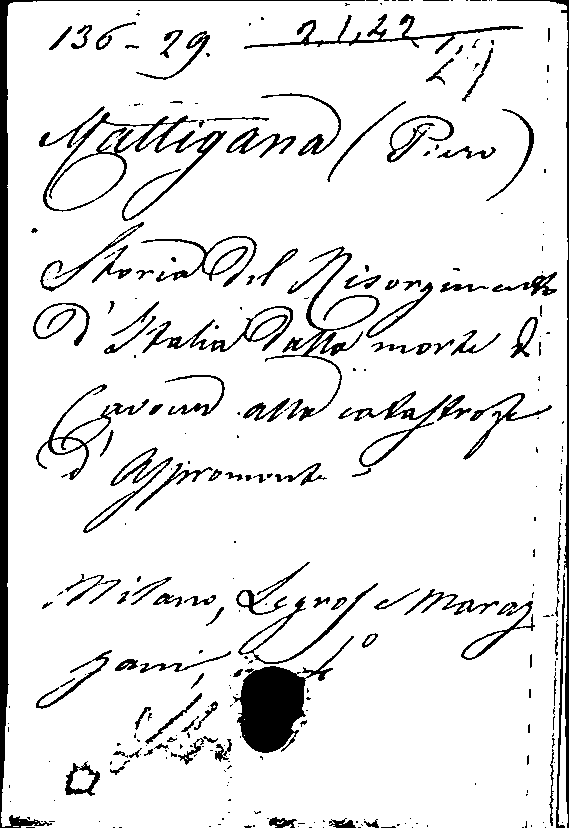 136-29. 2,1,22
27
Mattigana (Piero)
Storia del Risorgimento
d'Italia dalla morte di
Cavour alla catastrofe
d'Aspromonte
Milano, Legros e Maraz
zani, in 4°